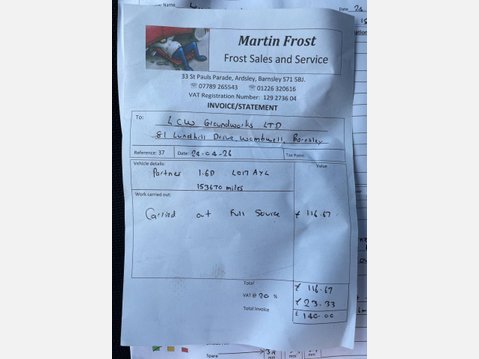 Martin Frost
Frost Sales and Service
33 St Pauls Parade, Ardsley, Barnsley S71 5BJ.
☏ 07789 265543 ☏ 01226 320616
VAT Registration Number: 129 2736 04
INVOICE/STATEMENT
To: LCW Groundworks LTD
81 Lundhill Drive, Wombwell, Barnsley
Reference: 37 Date: 20-04-26 Tax Point:
Vehicle details: Value
Partner 1.6D LO17 AYG
153670 miles
Work carried out:
Carried out Full Service £ 116.67
Total £ 116.67
VAT @ 20 % £ 23.33
Total Invoice £ 140.00
Spare